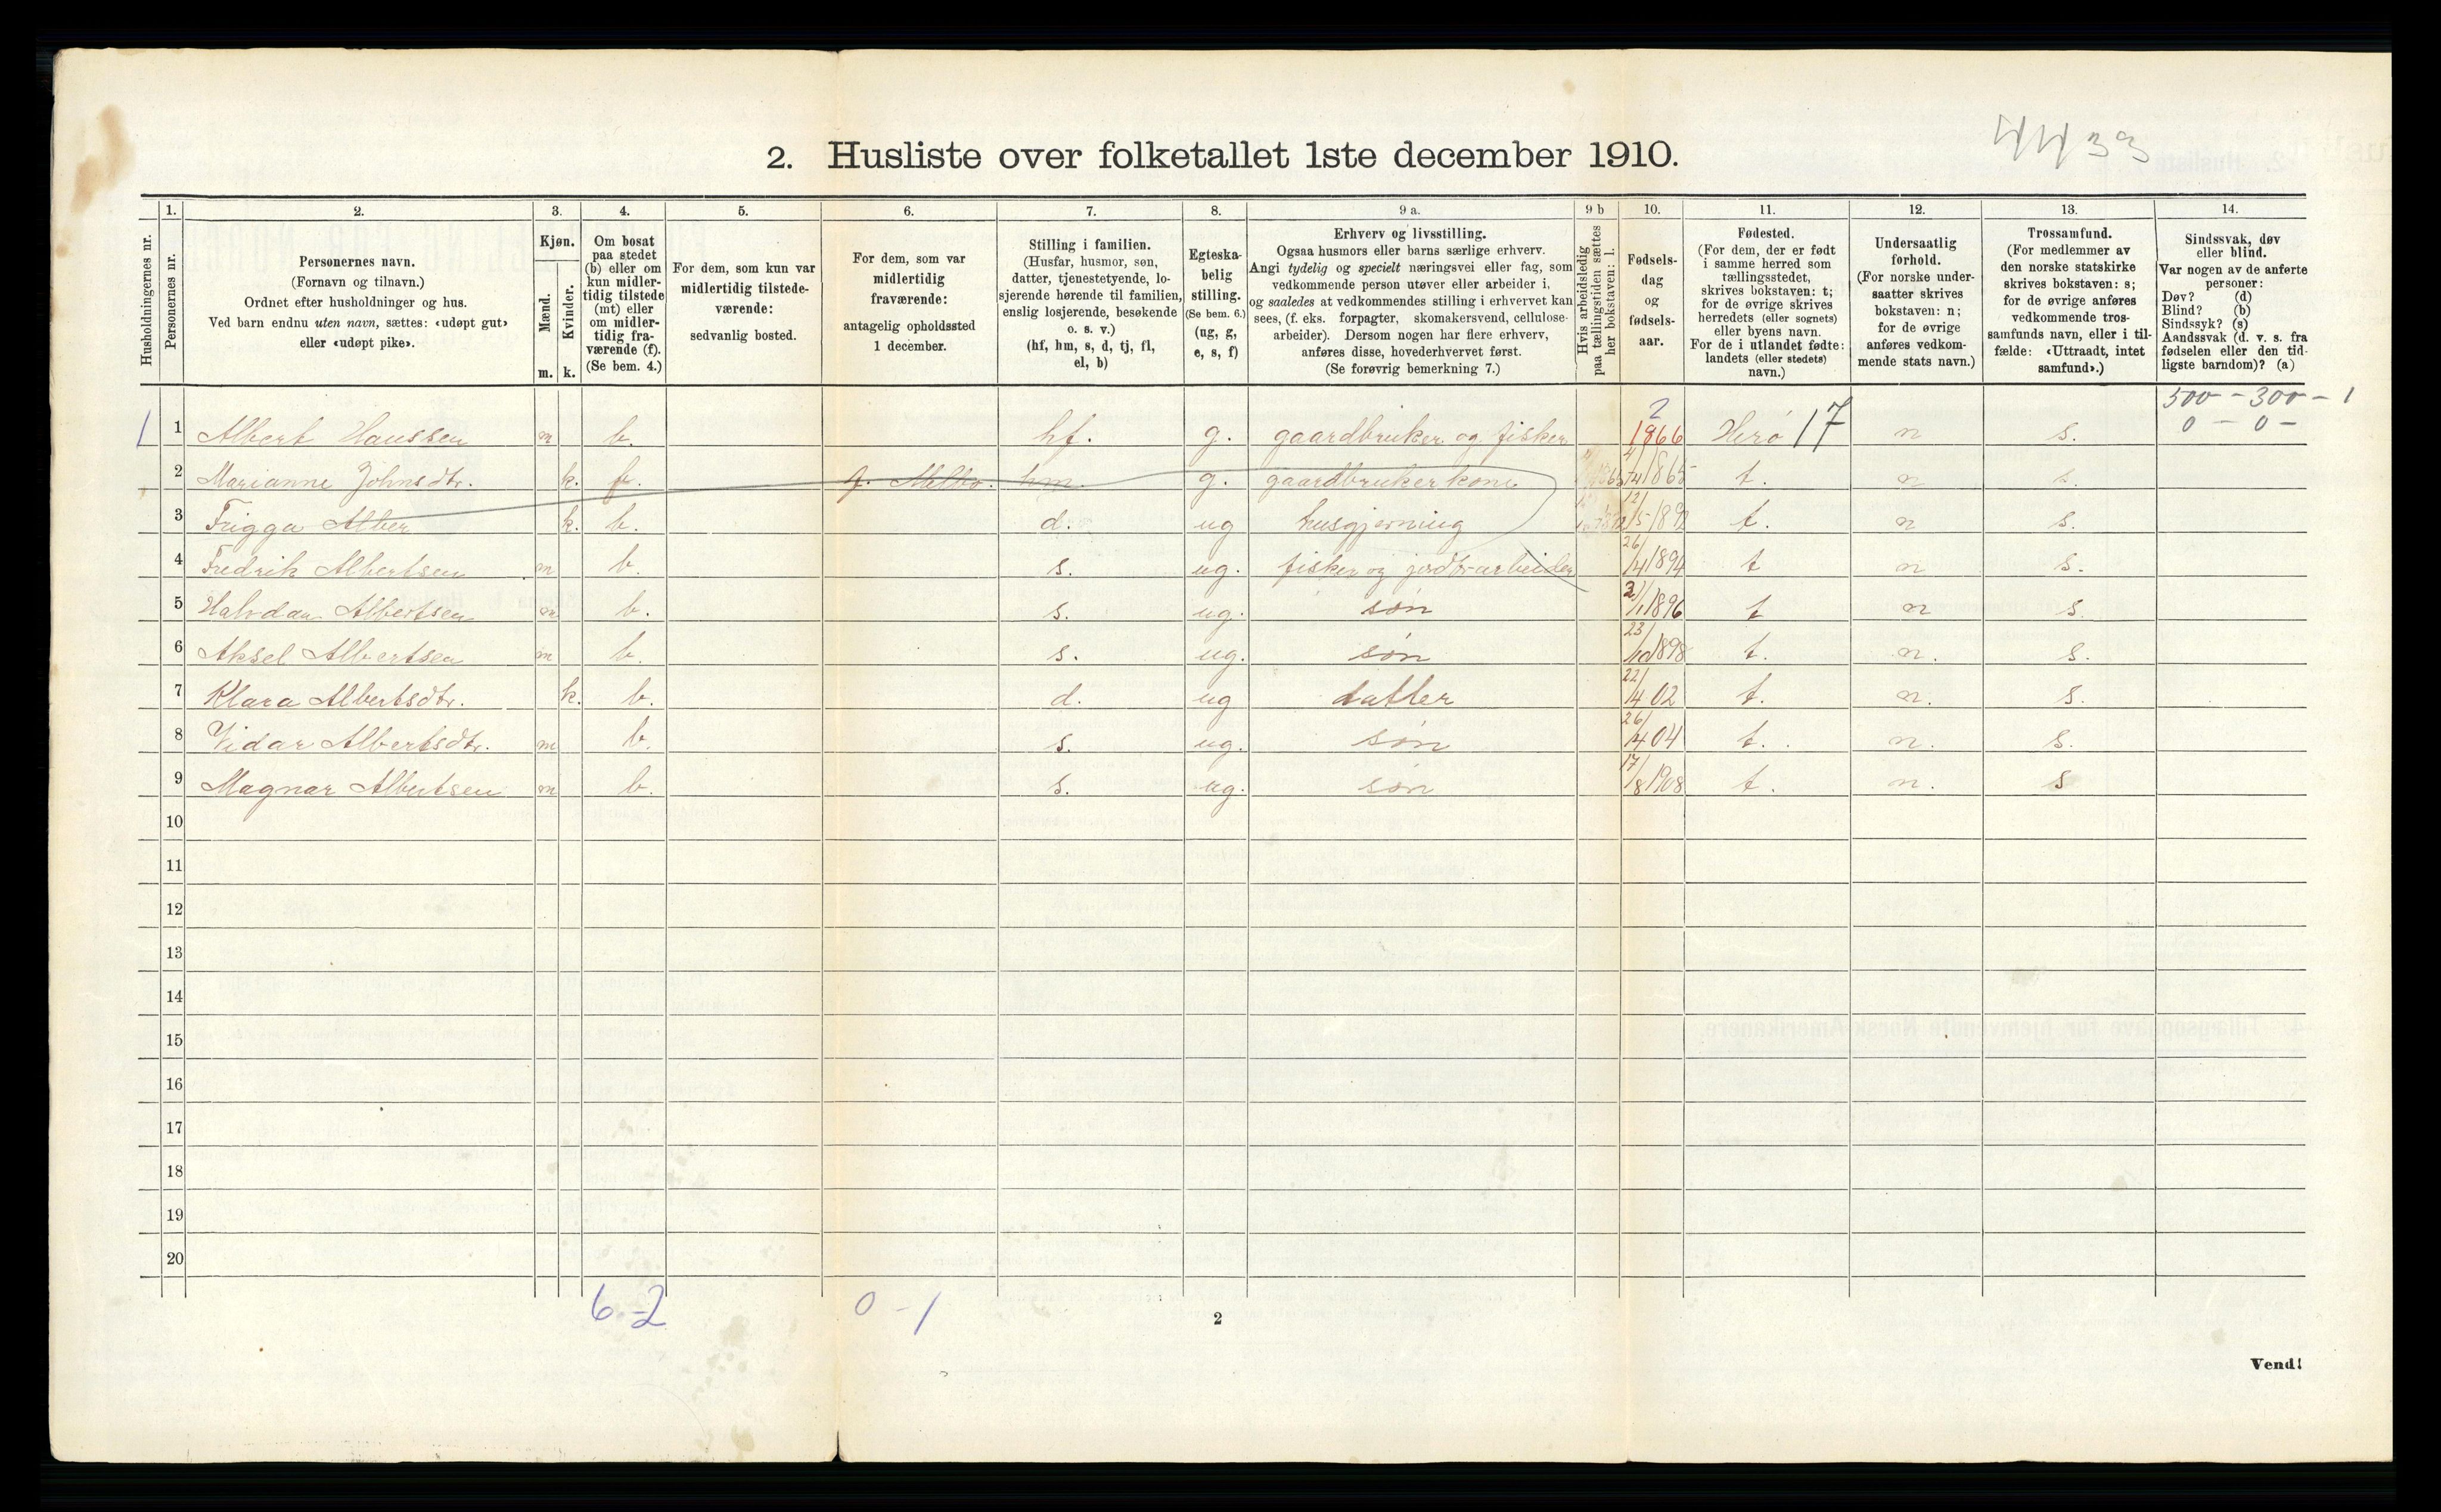 4433
2. Husliste over folketallet 1ste december 1910.
1. 2. 3. 4. 5. 6. 7. 8. 9 a. 9 b 10. 11. 12. 13. 14.
Husholdningernes nr.
Personernes nr.
Personernes navn.
(Fornavn og tilnavn.)
Ordnet efter husholdninger og hus.
Ved barn endnu uten navn, sættes: «udøpt gut»
eller «udøpt pike».
Kjøn.
Mænd.
Kvinder.
m. k.
Om bosat
paa stedet
(b) eller om
kun midler-
tidig tilstede
(mt) eller
om midler-
tidig fra-
værende (f).
(Se bem. 4.)
For dem, som kun var
midlertidig tilstede-
værende:
sedvanlig bosted.
For dem, som var
midlertidig
fraværende:
antagelig opholdssted
1 december.
Stilling i familien.
(Husfar, husmor, søn,
datter, tjenestetyende, lo-
sjerende hørende til familien,
enslig losjerende, besøkende
o. s. v.)
(hf, hm, s, d, tj, fl,
el, b)
Egteska-
belig
stilling.
(Se bem. 6.)
(ug, g,
e, s, f)
Erhverv og livsstilling.
Ogsaa husmors eller barns særlige erhverv.
Angi tydelig og specielt næringsvei eller fag, som
vedkommende person utøver eller arbeider i,
og saaledes at vedkommendes stilling i erhvervet kan
sees, (f. eks. forpagter, skomakersvend, cellulose-
arbeider). Dersom nogen har flere erhverv,
anføres disse, hovederhvervet først.
(Se forøvrig bemerkning 7.)
Hvis arbeidsledig
paa tællingstiden sættes
her bokstaven: l.
Fødsels-
dag
og
fødsels-
aar.
Fødested.
(For dem, der er født
i samme herred som
tællingsstedet,
skrives bokstaven: t;
for de øvrige skrives
herredets (eller sognets)
eller byens navn.
For de i utlandet fødte:
landets (eller stedets)
navn.)
Undersaatlig
forhold.
(For norske under-
saatter skrives
bokstaven: n;
for de øvrige
anføres vedkom-
mende stats navn.)
Trossamfund.
(For medlemmer av
den norske statskirke
skrives bokstaven: s;
for de øvrige anføres
vedkommende tros-
samfunds navn, eller i til-
fælde: «Uttraadt, intet
samfund».)
Sindssvak, døv
eller blind.
Var nogen av de anførte
personer:
Døv? (d)
Blind? (b)
Sindssyk? (s)
Aandssvak (d. v. s. fra
fødselen eller den tid-
ligste barndom)? (a)
500 - 300 - 1
0 - 0 -
1 1 Albert Hanssen m b. hf. g. gaardbruker og fisker 2 1866 Herø 17 n s.
2 Marianne Johnsdtr. k. f. g. Melbo. hm. g. gaardbrukerkone 4/4 1865 t. n s.
3 Frigga Alber k. b. d. ug husgjerning 12/5 1892 t. n s.
4 Fredrik Albertsen m b. s. ug. fisker og jordbrarbeider 26/4 1894 t n s.
5 Halvdan Albertsen m b. s. ug. søn 1896 t n s.
6 Aksel Albertsen m b. s. ug. søn 23/10 1898 t. n. s.
7 Klara Albertsdtr. k. b. d. ug datter 22/4 02 t. n. s.
8 Vidar Albertsdtr. m b. s. ug. søn 26/4 04 t. n. s.
9 Magnar Albertsen m b. s. ug. søn 17/8 1908 t. n. s
10
11
12
13
14
15
16
17
18
19
20
6-2 0-1
2
Vend!